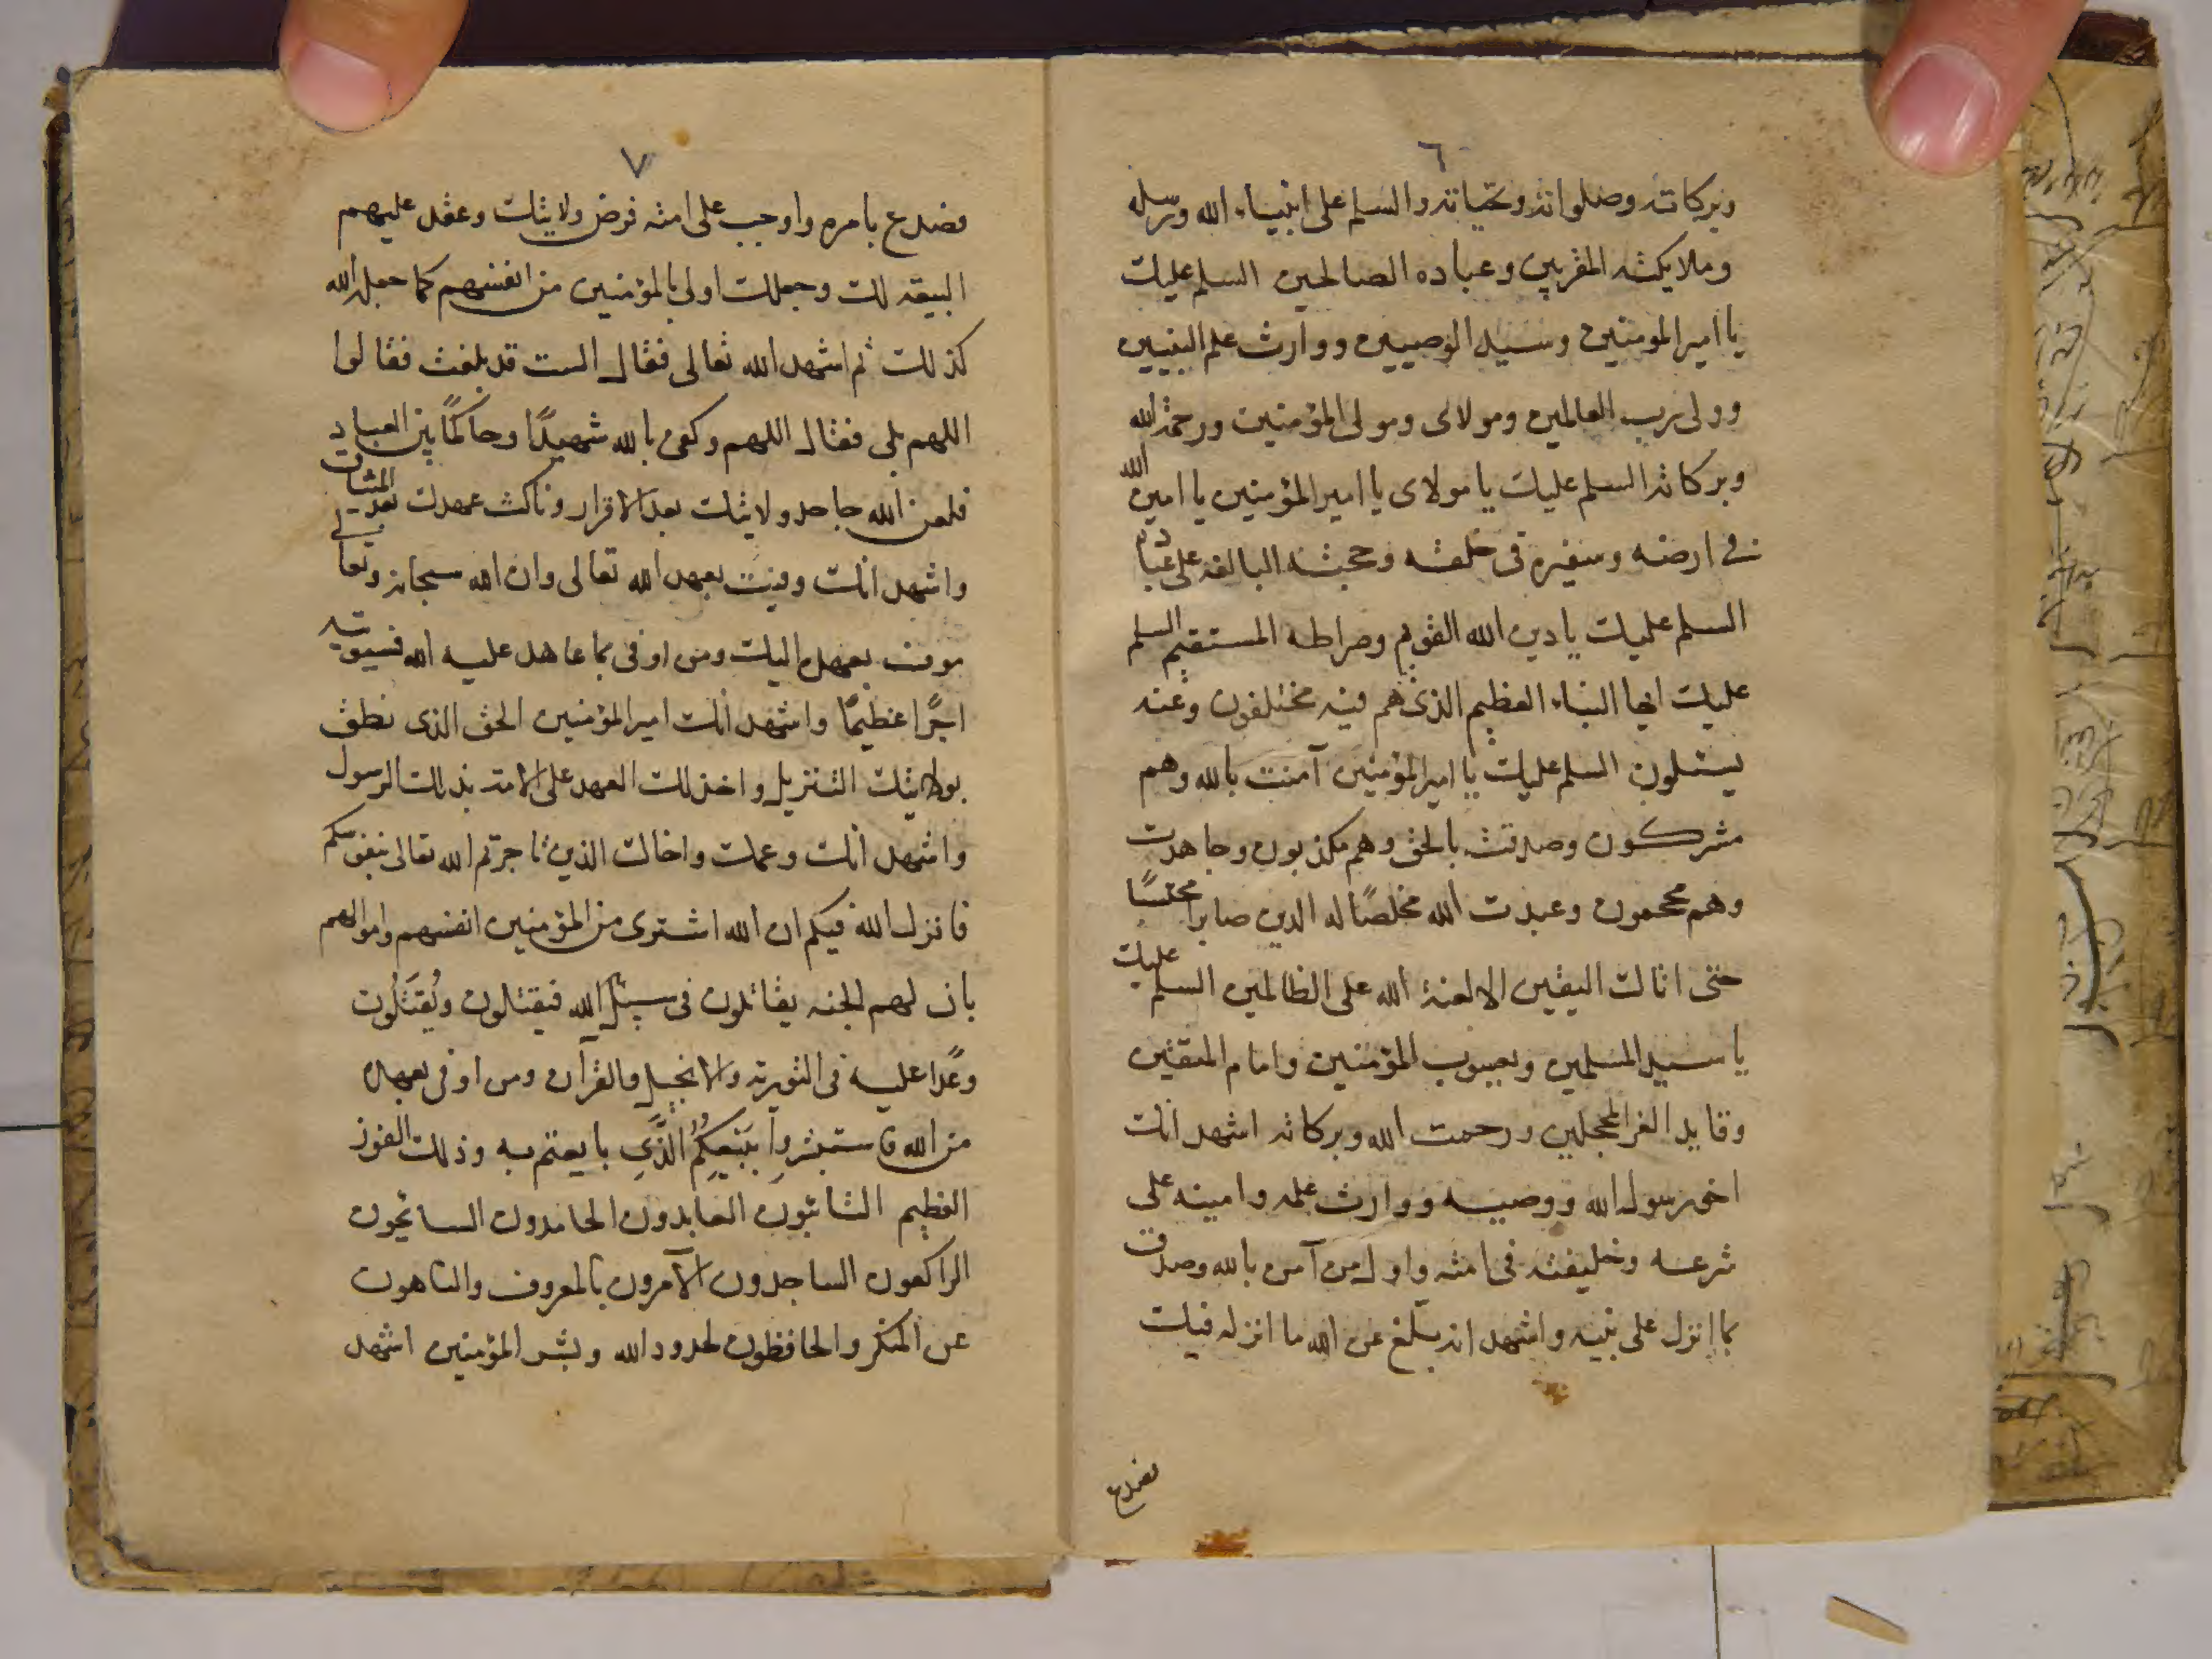 ٦
وبركاته وصلواته وتحياته والسلم على انبياء الله ورسله
وملايكته المقربين وعباده الصالحين السلم عليك
يا امير المومنين وسيد الوصيين ووارث علم النبيين
وولى رب العالمين ومولاى ومولى المؤمنين ورحمة الله
وبركاته السلم عليك يا مولاى يا امير المؤمنين يا امين الله
فى ارضه وسفيره فى خلقه وحجته البالغه على عباده
السلم عليك يا دين الله القويم وصراطه المستقيم السلم
عليك ايها النباء العظيم الذى هم فيه مختلفون وعنه
يسئلون السلم عليك يا امير المؤمنين آمنت بالله وهم
مشركون وصدقت بالحق وهم مكذبون وجاهدت
وهم محجمون وعبدت الله مخلصًا له الدين صابرا محتسبًا
حتى اتاك اليقين الا لعنة الله على الظالمين السلم عليك
يا سيد المسلمين ويعسوب المؤمنين وامام المتقين
وقايد الغر المحجلين ورحمت الله وبركاته اشهد انك
اخو رسول الله ووصيه ووارث علمه وامينه على
شرعه وخليفته فى امته واول من آمن بالله وصدق
بما انزل على نبيه واشهد انه بلغ عن الله ما انزله فيك
فصدع
٧
فصدع بامره واوجب على امته فرض ولايتك وعقد عليهم
البيعه لك وجعلك اولى بالمؤمنين من انفسهم كما جعله الله
كذلك ثم اشهد الله تعالى فقال الست قد بلغت فقالوا
اللهم بلى فقال اللهم وكفى بالله شهيدًا وحاكمًا بين العباد
فلعن الله جاحد ولايتك بعد الاقرار وناكث عهدك بعد الميثاق
واشهد انك وفيت بعهد الله تعالى وان الله سبحانه وتعالى
موف بعهده اليك ومن اوفى بما عاهد عليه الله فسيوتيه
اجرًا عظيمًا واشهد انك امير المؤمنين الحق الذى نطق
بولايتك التنزيل واخذ لك العهد على الامة بذلك الرسول
واشهد انك وعمك واخاك الذين تاجرتم الله تعالى بنفوسكم
فانزل الله فيكم ان الله اشترى من المؤمنين انفسهم واموالهم
بان لهم الجنه يقاتلون فى سبيل الله فيقتلون ويُقتَلُون
وعدًا عليه فى التورية والانجيل والقرآن ومن اوفى بعهده
من الله فاستبشروا ببَيْعِكُمُ الَّذِي بايعتم به وذلك الفوز
العظيم التائبون العابدون الحامدون السائحون
الراكعون الساجدون الآمرون بالمعروف والناهون
عن المنكر والحافظون لحدود الله وبشر المؤمنين اشهد